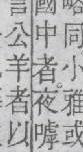 略同小雅或
國中者。夜嘑
言公羊者以